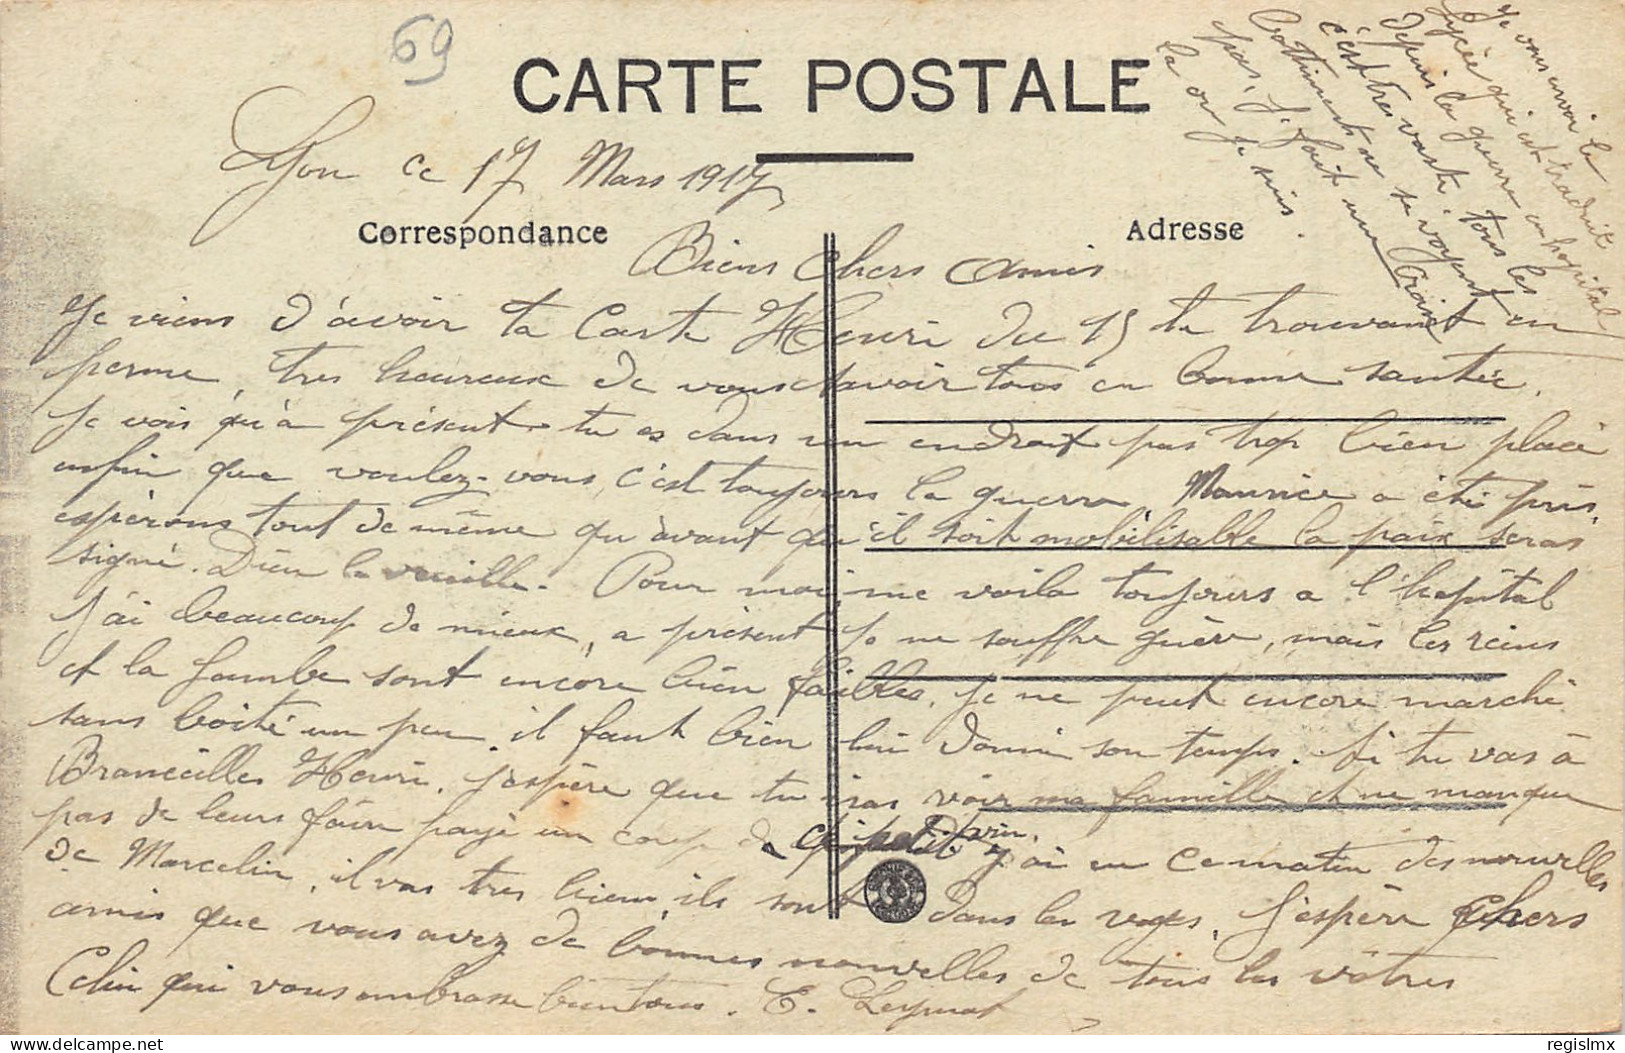 69
CARTE POSTALE
Lyon ce 17 Mars 1917
Correspondance
Adresse
Biens Chers Amis
Je viens d'avoir ta Carte Henri du 15 te trouvant en
perme, tres heureux de vous savoir tous en bonne santée.
Je vois qu'à présent tu es dans un endroit pas trop bien placé
enfin que voulez-vous, c'est toujours la guerre Maurice a été pris,
espérons tout de même qu'avant qu'il soit mobilisable la paix seras
signé. Dieu le veuille. Pour moi, me voila toujours a l'hopital
J'ai beaucoup de mieux, a présent je ne souffre guère, mais les reins
et la jambe sont encore bien faibles. Je ne peut encore marché
sans boité un peu, il faut bien lui donné son temps. Si tu vas à
Braneilles Henri, j'espère que tu iras voir ma famille et ne manque
pas de leurs faire payé un coup de petit vin. j'ai eu ce matin des nouvelles
de Marcelin, il vas tres bien, ils sont dans les voges, J'espère Chers
amis que vous avez de bonnes nouvelles de tous les vôtres
Celui qui vous embrasse bien tous. E. Leymat
Je vous envoi le
lycée qui est traduit
depuis la guerre en hopital
c'est tres vaste, tous les
batiments ne se voyent
pas, J'ai fait une croix
la ou je suis.
regislmx
delcampe.net